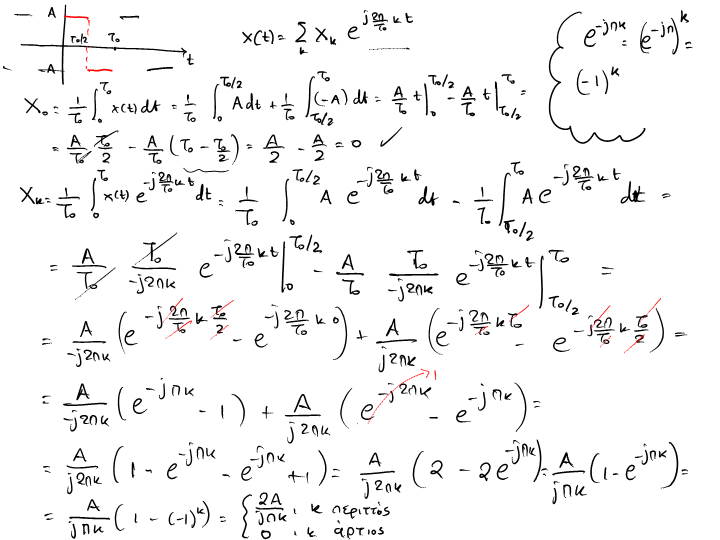 A
T₀/2 T₀ t
-A
x(t) = Σ_k X_k e^{j(2π/T₀)kt}
e^{-jπk} = (e^{-jπ})^k =
(-1)^k
X₀ = 1/T₀ ∫₀^{T₀} x(t) dt = 1/T₀ ∫₀^{T₀/2} A dt + 1/T₀ ∫_{T₀/2}^{T₀} (-A) dt = A/T₀ t |₀^{T₀/2} - A/T₀ t |_{T₀/2}^{T₀} =
= A/T₀ T₀/2 - A/T₀ (T₀ - T₀/2) = A/2 - A/2 = 0 ✓
X_k = 1/T₀ ∫₀^{T₀} x(t) e^{-j(2π/T₀)kt} dt = 1/T₀ ∫₀^{T₀/2} A e^{-j(2π/T₀)kt} dt - 1/T₀ ∫_{T₀/2}^{T₀} A e^{-j(2π/T₀)kt} dt =
= A/T₀ T₀/(-j2πk) e^{-j(2π/T₀)kt} |₀^{T₀/2} - A/T₀ T₀/(-j2πk) e^{-j(2π/T₀)kt} |_{T₀/2}^{T₀} =
= A/(-j2πk) (e^{-j(2π/T₀)k(T₀/2)} - e^{-j(2π/T₀)k0}) + A/(j2πk) (e^{-j(2π/T₀)kT₀} - e^{-j(2π/T₀)k(T₀/2)}) =
= A/(-j2πk) (e^{-jπk} - 1) + A/(j2πk) (e^{-j2πk} → 1 - e^{-jπk}) =
= A/(j2πk) (1 - e^{-jπk} - e^{-jπk} + 1) = A/(j2πk) (2 - 2e^{-jπk}) = A/(jπk) (1 - e^{-jπk}) =
= A/(jπk) (1 - (-1)^k) = { 2A/(jπk), k περιττός
0, k άρτιος